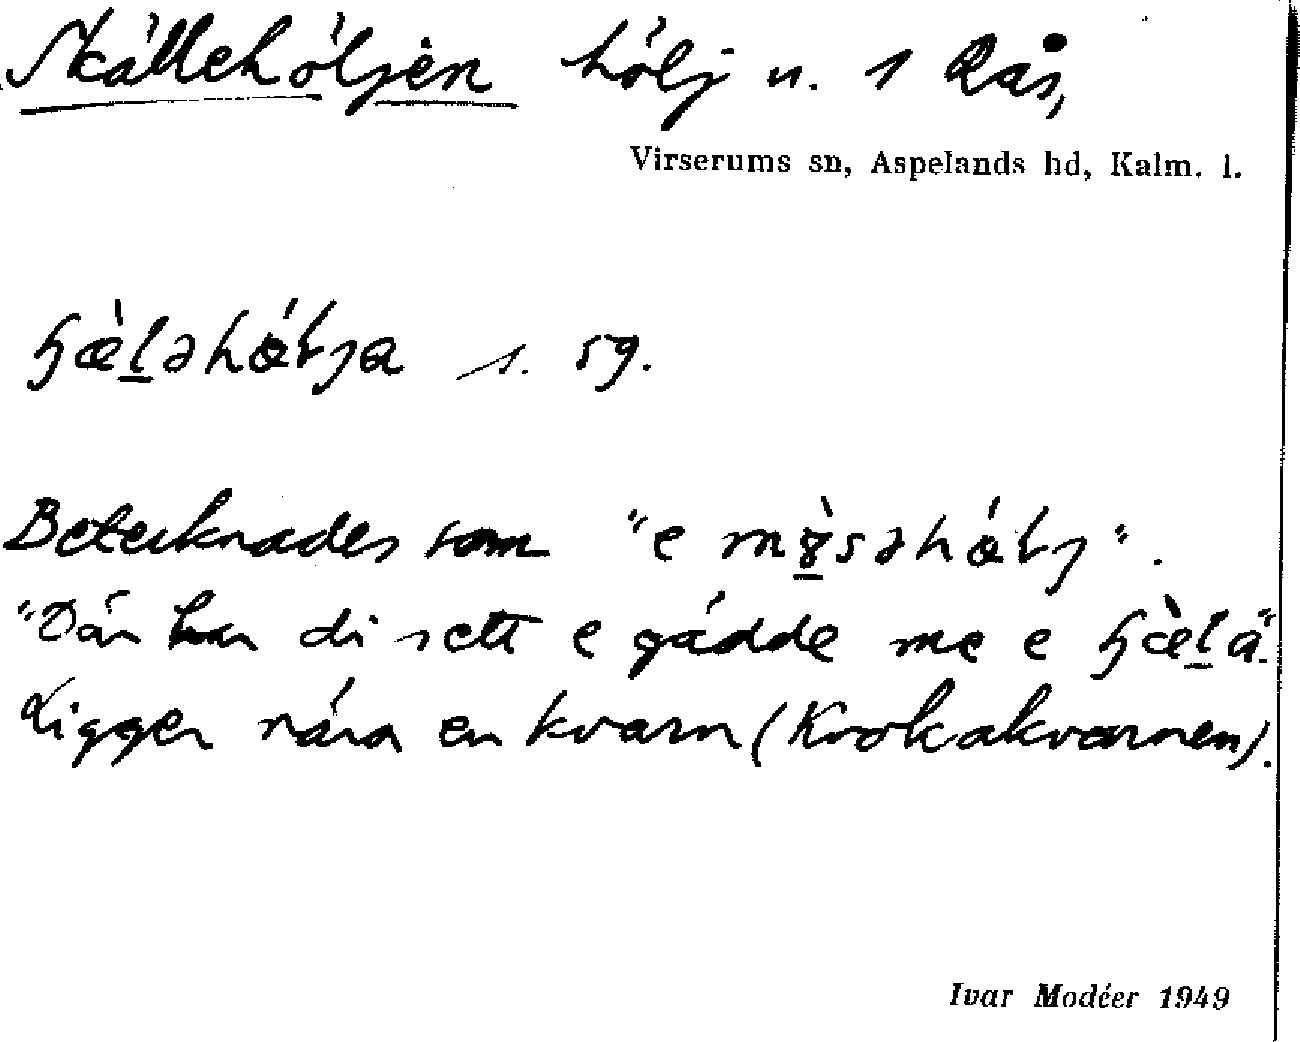 Skällehöljen hölj Rås,
Virserums sn, Aspelands hd, Kalm. l.
ɧæ̀ḻəhǿɽja s. sg.
Betecknades som "e məhǿɽj".
"Där har di sett e gädde me e ɧæ̀ḻa".
Ligger nära en kvarn (Krokakvarnen).
Ivar Modéer 1949